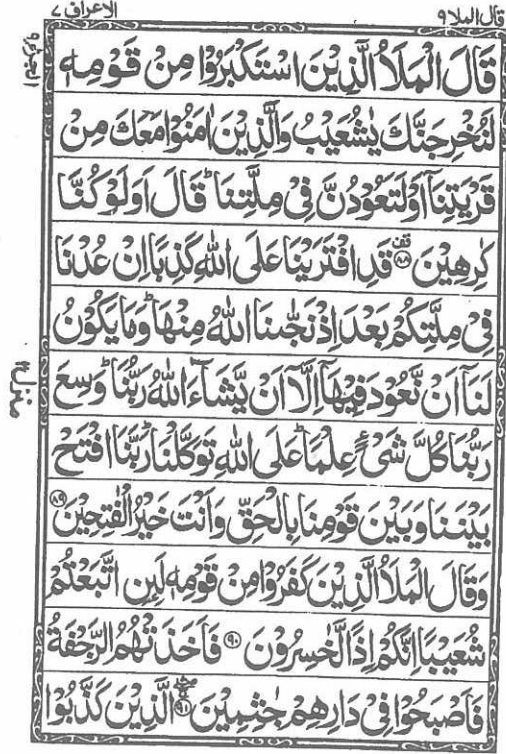 قال الملا ٩ الاعراف ٧
الجزء ٩
قَالَ الْمَلَاُ الَّذِیْنَ اسْتَكْبَرُوْا مِنْ قَوْمِهٖ
لَنُخْرِجَنَّكَ یٰشُعَیْبُ وَالَّذِیْنَ اٰمَنُوْا مَعَكَ مِنْ
قَرْیَتِنَاۤ اَوْ لَتَعُوْدُنَّ فِیْ مِلَّتِنَاؕ قَالَ اَوَلَوْ كُنَّا
كٰرِهِیْنَ ۟ۙ۸۸ قَدِ افْتَرَیْنَا عَلَى اللّٰهِ كَذِبًا اِنْ عُدْنَا
فِیْ مِلَّتِكُمْ بَعْدَ اِذْ نَجّٰىنَا اللّٰهُ مِنْهَاؕ وَمَا یَكُوْنُ
لَنَاۤ اَنْ نَّعُوْدَ فِیْهَاۤ اِلَّاۤ اَنْ یَّشَآءَ اللّٰهُ رَبُّنَاؕ وَسِعَ
رَبُّنَا كُلَّ شَیْءٍ عِلْمًاؕ عَلَى اللّٰهِ تَوَكَّلْنَاؕ رَبَّنَا افْتَحْ
بَیْنَنَا وَبَیْنَ قَوْمِنَا بِالْحَقِّ وَاَنْتَ خَیْرُ الْفٰتِحِیْنَ ۸۹
وَقَالَ الْمَلَاُ الَّذِیْنَ كَفَرُوْا مِنْ قَوْمِهٖ لَىِٕنِ اتَّبَعْتُمْ
شُعَیْبًا اِنَّكُمْ اِذًا لَّخٰسِرُوْنَ ۹۰ فَاَخَذَتْهُمُ الرَّجْفَةُ
فَاَصْبَحُوْا فِیْ دَارِهِمْ جٰثِمِیْنَ ۹۱ الَّذِیْنَ كَذَّبُوْا
منزل ٢